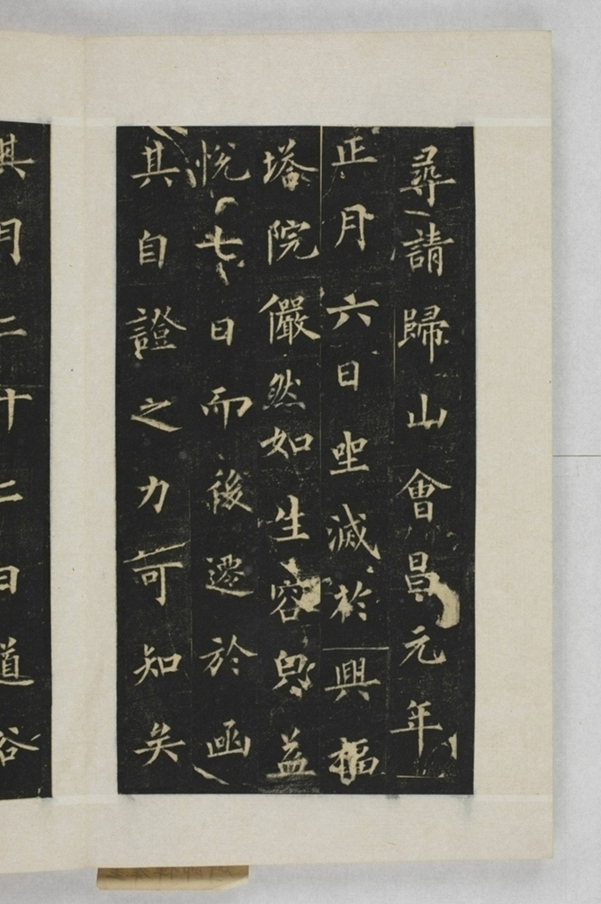 尋請歸山會昌元年
正月六日坐滅於興福
塔院儼然如生容皃益
悅七日而後遷於函
其自證之力可知矣
其月二十二日道俗